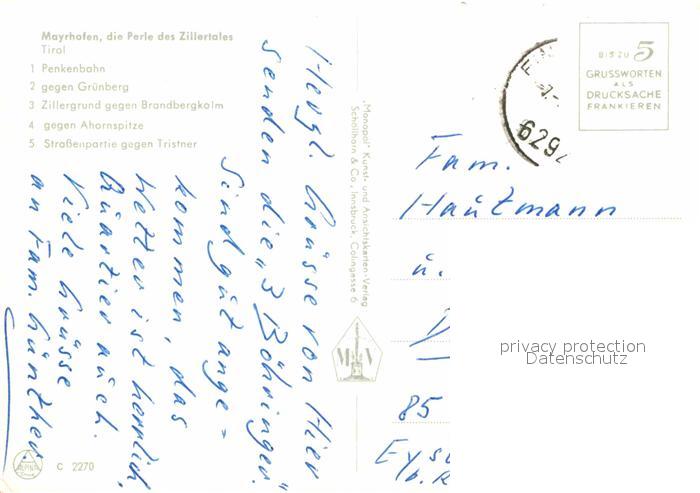 Mayrhofen, die Perle des Zillertales
Tirol
1 Penkenbahn
2 gegen Grünberg
3 Zillergrund gegen Brandbergkolm
4 gegen Ahornspitze
5 Straßenpartie gegen Tristner
Herzl. Grüsse von Hier
senden die „3 Böhringer."
Sind gut ange=
kommen, das
Wetter ist herrlich,
Quartier auch.
Viele Grüsse
an Fam. Günther.
„Monopol" Kunst- und Ansichtskarten-Verlag
Schöllhorn & Co., Innsbruck, Colingasse 6
M V
BIS ZU 5
GRUSSWORTEN
ALS
DRUCKSACHE
FRANKIEREN
6294
Fam.
Hautzmann
u.
85
privacy protection
Datenschutz
ALPINA
C 2270